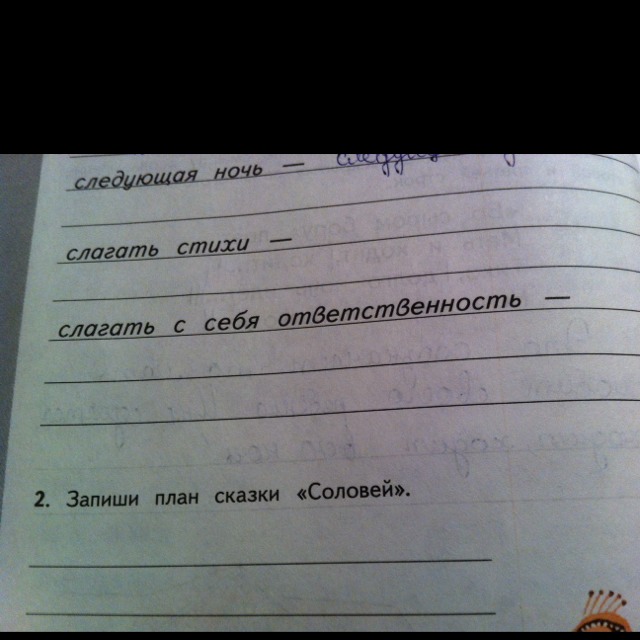 следующая ночь —
слагать стихи —
слагать с себя ответственность —
2. Запиши план сказки «Соловей».